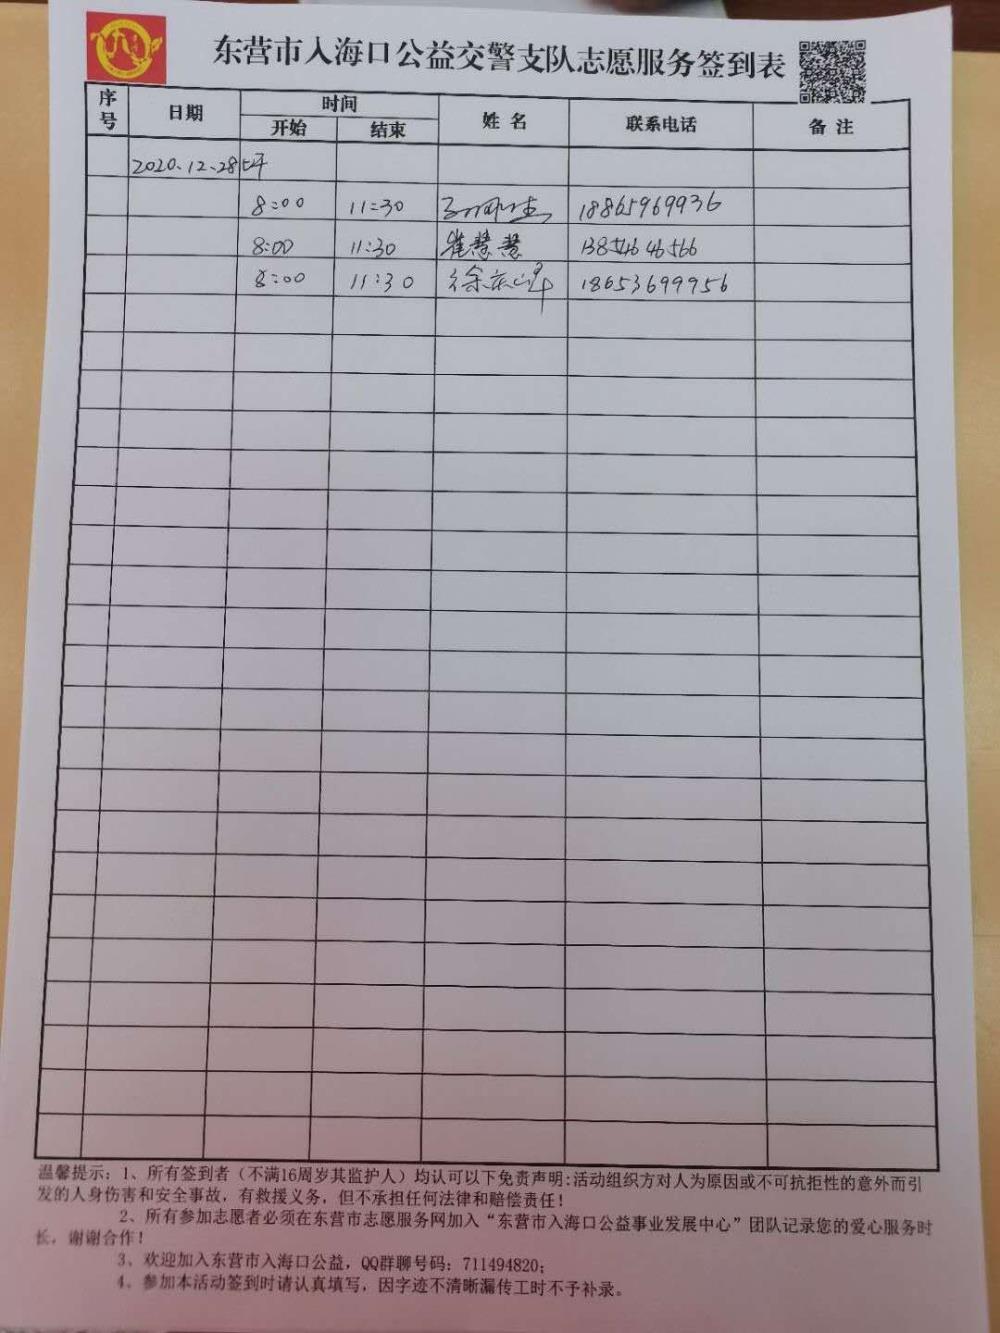 东营市入海口公益交警支队志愿服务签到表
序号 日期 时间 姓名 联系电话 备注
开始 结束
2020.12.28上午
8:00 11:30 18865969936
8:00 11:30 崔慧慧 13854646566
8:00 11:30 徐 18653699956
温馨提示：1、所有签到者（不满16周岁其监护人）均认可以下免责声明:活动组织方对人为原因或不可抗拒性的意外而引
发的人身伤害和安全事故，有救援义务，但不承担任何法律和赔偿责任！
2、所有参加志愿者必须在东营市志愿服务网加入“东营市入海口公益事业发展中心”团队记录您的爱心服务时
长，谢谢合作！
3、欢迎加入东营市入海口公益，QQ群聊号码：711494820；
4、参加本活动签到时请认真填写，因字迹不清晰漏传工时不予补录。